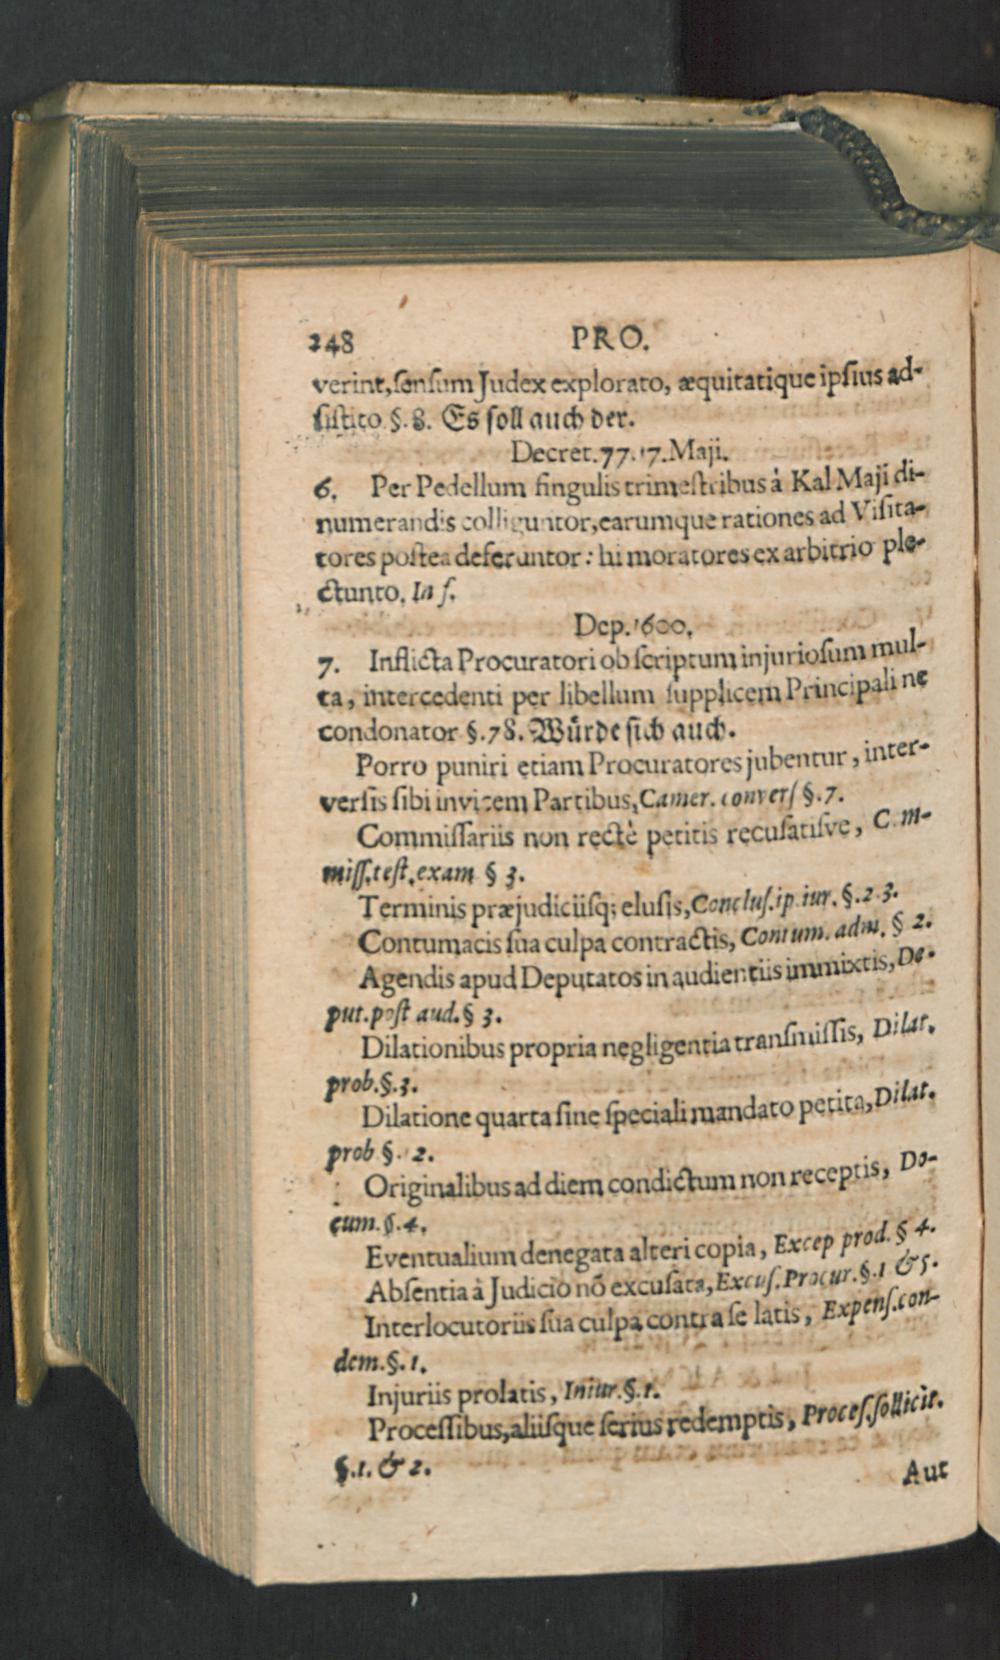 248 PRO.
verint, sensum Judex explorato, æquitatique ipsius ad-
sistito §. 8. Es soll auch der.
Decret. 77. 17. Maji.
6. Per Pedellum singulis trimestribus à Kal Maji di-
numerandis colliguntor, earumque rationes ad Visita-
tores postea deferuntor: hi moratores ex arbitrio ple-
ctunto. In f.
Dep. 1600.
7. Inflicta Procuratori ob scriptum injuriosum mul-
ta, intercedenti per libellum supplicem Principali ne
condonator §. 78. Würde sich auch.
Porro puniri etiam Procuratores jubentur, inter-
versis sibi invicem Partibus, Camer. convers §. 7.
Commissariis non rectè petitis recusatisve, C m-
miss. test. exam § 3.
Terminis præjudiciisq; elusis, Conclus. ip iur. §. 2 3.
Contumacis sua culpa contractis, Contum. adm. § 2.
Agendis apud Deputatos in audientiis immixtis, De-
put. post aud. § 3.
Dilationibus propria negligentia transmissis, Dilat.
prob. §. 3.
Dilatione quarta sine speciali mandato petita, Dilat.
prob §. 2.
Originalibus ad diem condictum non receptis, Do-
cum. §. 4.
Eventualium denegata alteri copia, Excep prod. § 4.
Absentia à Judicio nō excusata, Excus. Procur. §. 1 & 5.
Interlocutoriis sua culpa contra se latis, Expens. con-
dem. §. 1.
Injuriis prolatis, Iniur. §. 1.
Processibus, aliisque serius redemptis, Proces. sollicit.
§. 1. & 2.
Aut